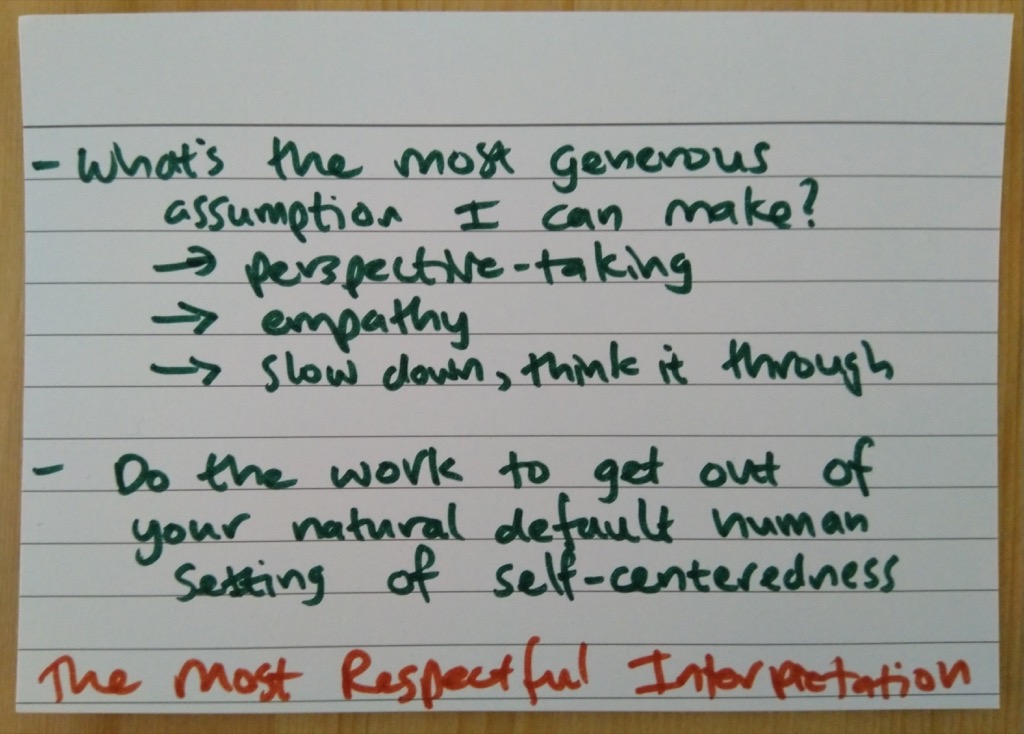 - What's the most generous
assumption I can make?
→ perspective-taking
→ empathy
→ slow down, think it through
- Do the work to get out of
your natural default human
setting of self-centeredness
The Most Respectful Interpretation